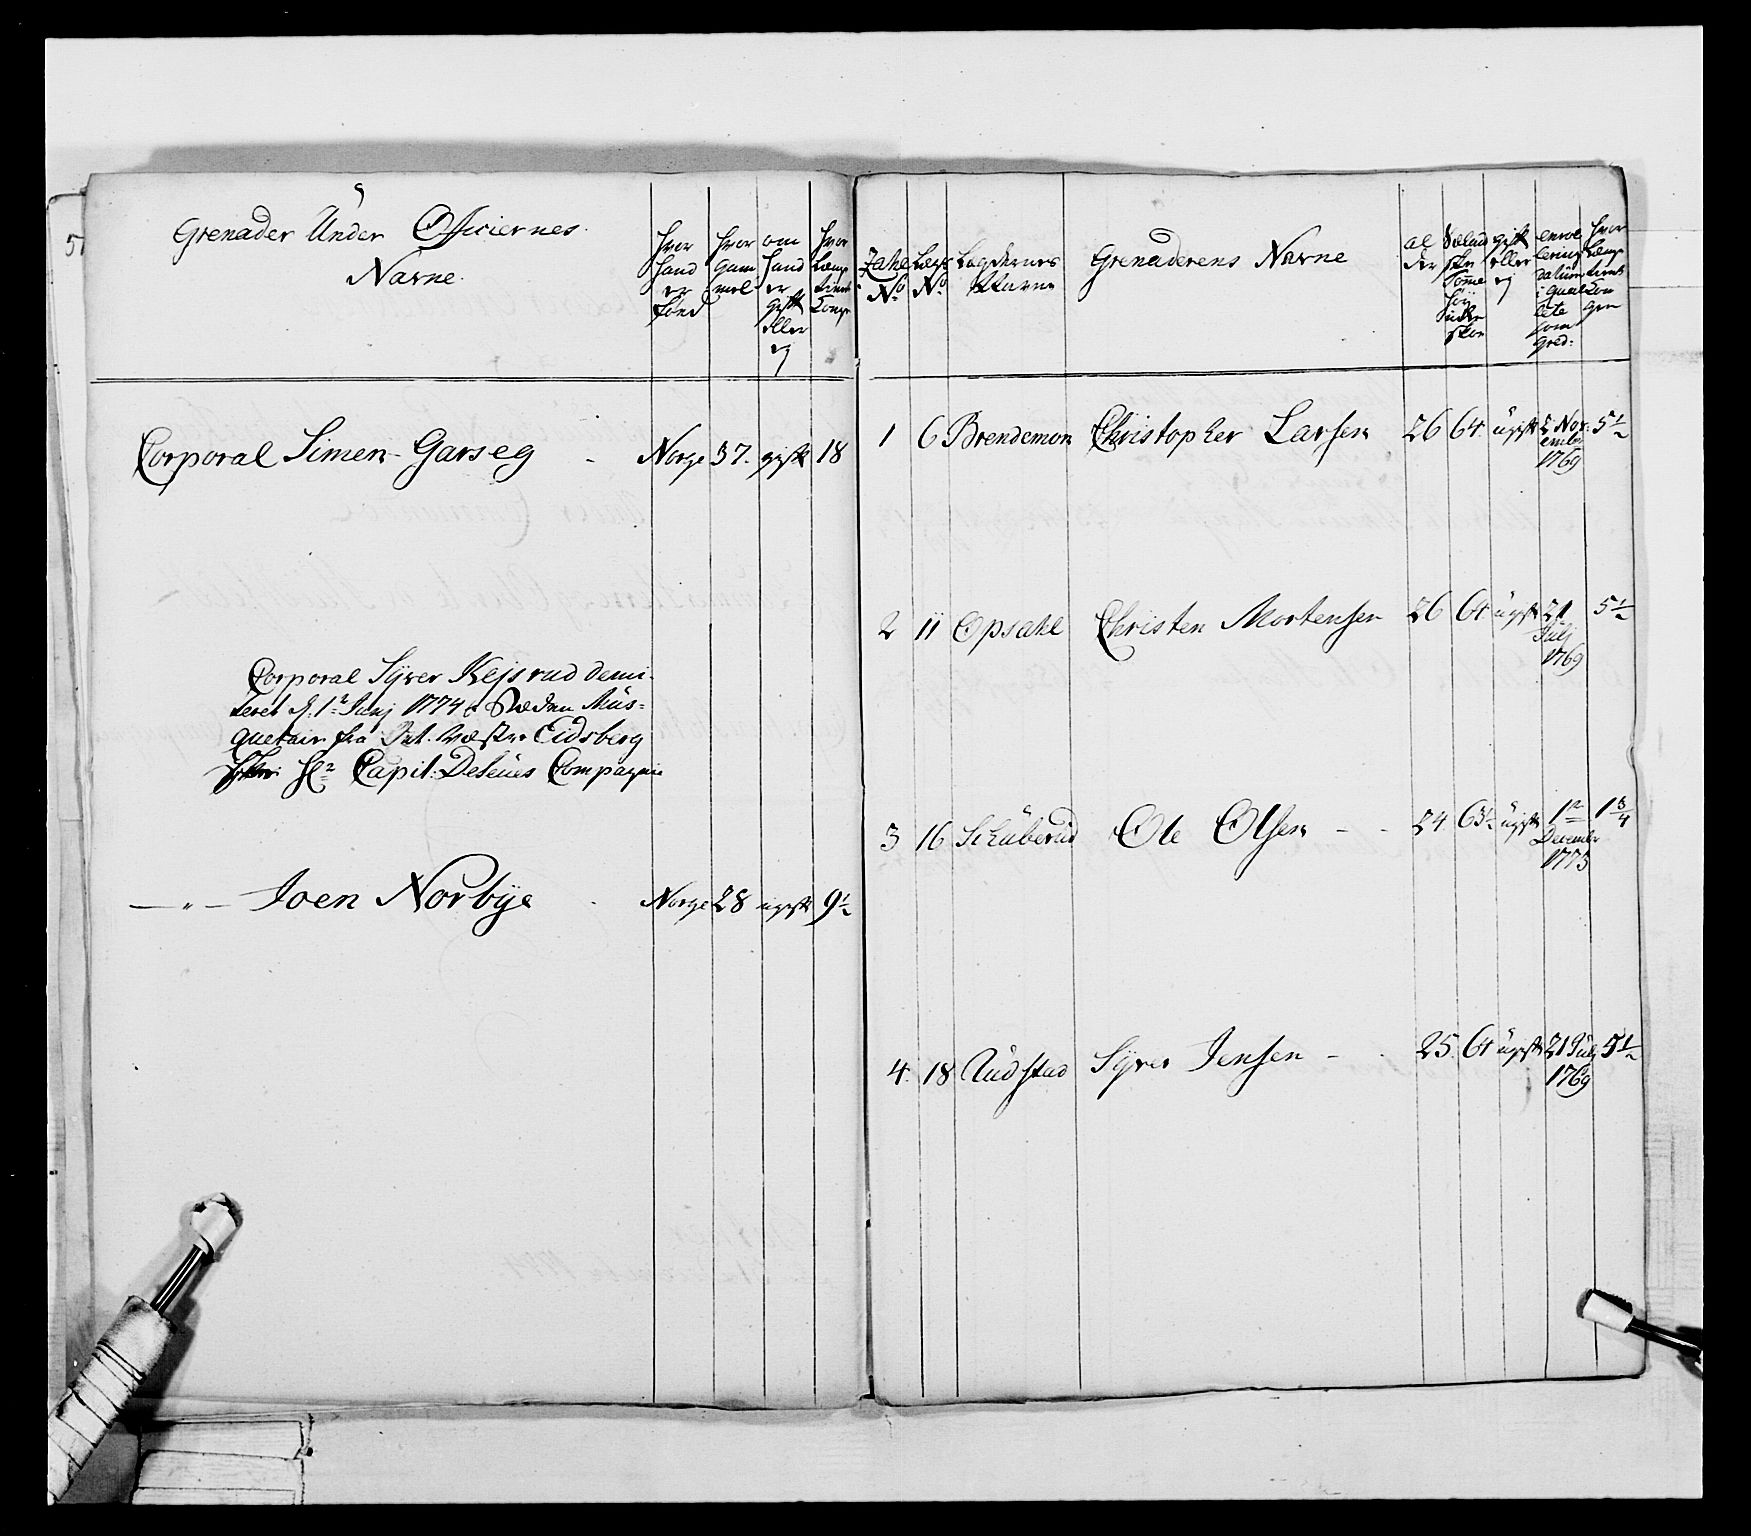 Grenader Under Officiernes
Navne
hvor hand er fönd
hvor gam mel
om hand er gift eller ej
hvor Længe tient Konge
Corporal Simen Garseg - Norge 37. gift 18
Corporal Syver Kejsrud demi-
teret d. 1te Junj 1774
quetair fra Eidsberg
Hr Capit: Deleues Compagnie
— " — Joen Norbye - Norge 28 ugift 9½
5
Zahl No
Lægs No
Lægdernes Navne
Grenaderens Navne
al der
gift eller ej
enrol lerings datum i qvali tete som gred:
hvor Længe tient Kon gen
1 6 Brendemoen Christopher Larsen 26 64. ugift 2 Nov: embr 1769 5½
2 11 Opsahl Christen Mortensen 26 64 ugift 21 Julj 1769 5½
3 16 Schüberud Ole Olsen - - 24 63½ ugift 1te December 1773 1¾
4. 18 Rudstad Syver Jensen - - 25. 64 ugift 21 Julj 1769 5½